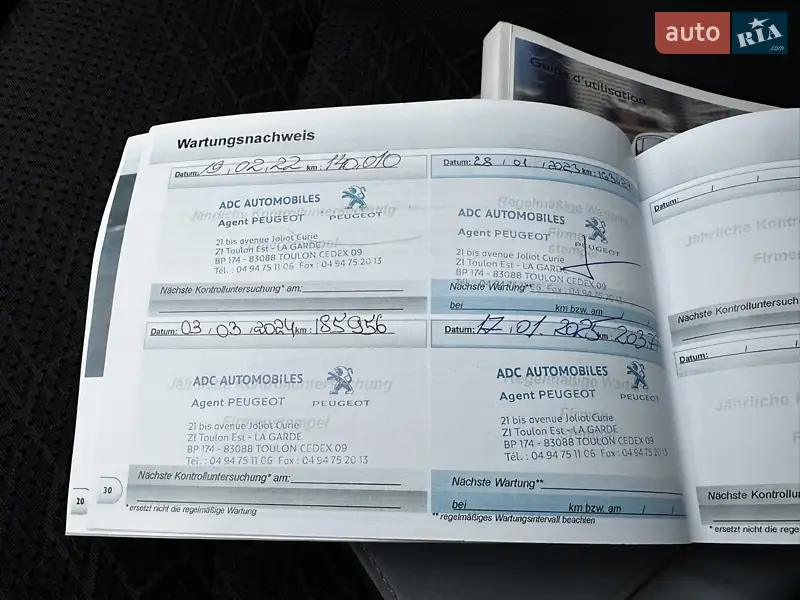 auto RIA .com
Guide d'utilisation
Wartungsnachweis
Datum: 19.02.22 km: 140.010
Jährliche Kontrolluntersuchung
ADC AUTOMOBILES
Agent PEUGEOT
PEUGEOT
21 bis avenue Joliot Curie
ZI Toulon Est - LA GARDE
BP 174 - 83088 TOULON CEDEX 09
Tél. : 04 94 75 11 06 Fax : 04 94 75 20 13
Nächste Kontrolluntersuchung* am:
Datum: 28 / 01 / 2023 km:
Regelmäßige Wartung
ADC AUTOMOBILES
Agent PEUGEOT
PEUGEOT
21 bis avenue Joliot Curie
ZI Toulon Est - LA GARDE
BP 174 - 83088 TOULON CEDEX 09
Tél. : 04 94 75 11 06 Fax : 04 94 75 20 13
Nächste Wartung**
bei km bzw. am / /
Datum: 03 / 03 / 2024 km: 185956
Jährliche Kontrolluntersuchung
Firmenstempel
ADC AUTOMOBILES
Agent PEUGEOT
PEUGEOT
21 bis avenue Joliot Curie
ZI Toulon Est - LA GARDE
BP 174 - 83088 TOULON CEDEX 09
Tél. : 04 94 75 11 06 Fax : 04 94 75 20 13
Nächste Kontrolluntersuchung* am:
* ersetzt nicht die regelmäßige Wartung
Datum: 17 / 01 / 2025 km: 2037
Regelmäßige Wartung
ADC AUTOMOBILES
Agent PEUGEOT
PEUGEOT
21 bis avenue Joliot Curie
ZI Toulon Est - LA GARDE
BP 174 - 83088 TOULON CEDEX 09
Tél. : 04 94 75 11 06 Fax : 04 94 75 20 13
Nächste Wartung**
bei km bzw. am / /
** regelmäßiges Wartungsintervall beachten
20
30
Datum: / /
Jährliche Kontro
Firme
Nächste Kontrolluntersuch
Datum: / /
Jährliche Kont
Nächste Kontrollu
* ersetzt nicht die rege